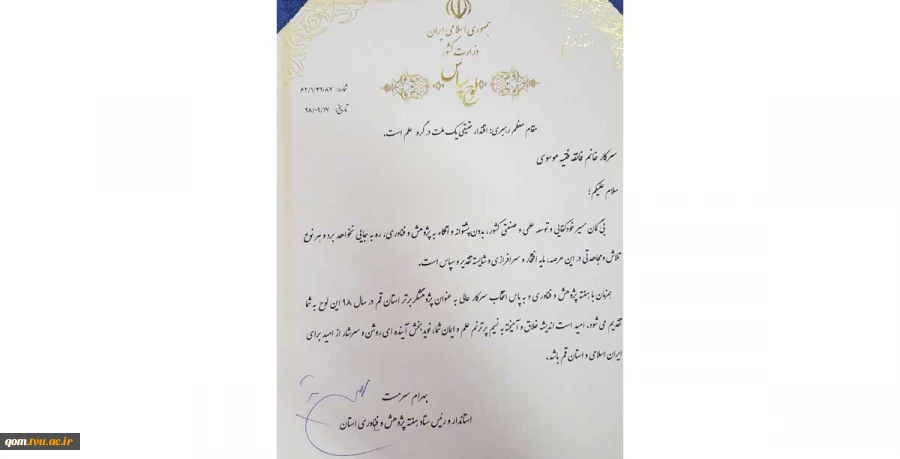 جمهوری اسلامی ایران
وزارت کشور
استانداری قم
لوح سپاس
شماره: ۶۲/۱/۲۶۰۸۷
تاریخ: ۹۸/۰۹/۲۷
مقام معظم رهبری: اقتدار حقیقی یک ملت در گرو علم است.
سرکار خانم فائقه فقیه موسوی
سلام علیکم؛
بی گمان مسیر خودکفایی و توسعه علمی و صنعتی کشور، بدون پشتوانه و اتکاء به پژوهش و فناوری، ره به جایی نخواهد برد و هر نوع
تلاش و مجاهدتی در این عرصه، مایه افتخار و سرافرازی و شایسته تقدیر و سپاس است.
همزمان با هفته پژوهش و فناوری و به پاس انتخاب سرکار عالی به عنوان پژوهشگر برتر استان قم در سال ۹۸ این لوح به شما
تقدیم می شود. امید است اندیشه خلاق و آمیخته به نسیم پر ترنم علم و ایمان شما، نوید بخش آینده ای روشن و سرشار از امید برای
ایران اسلامی و استان قم باشد.
بهرام سرمست
استاندار و رئیس ستاد هفته پژوهش و فناوری استان
qom.tvu.ac.ir